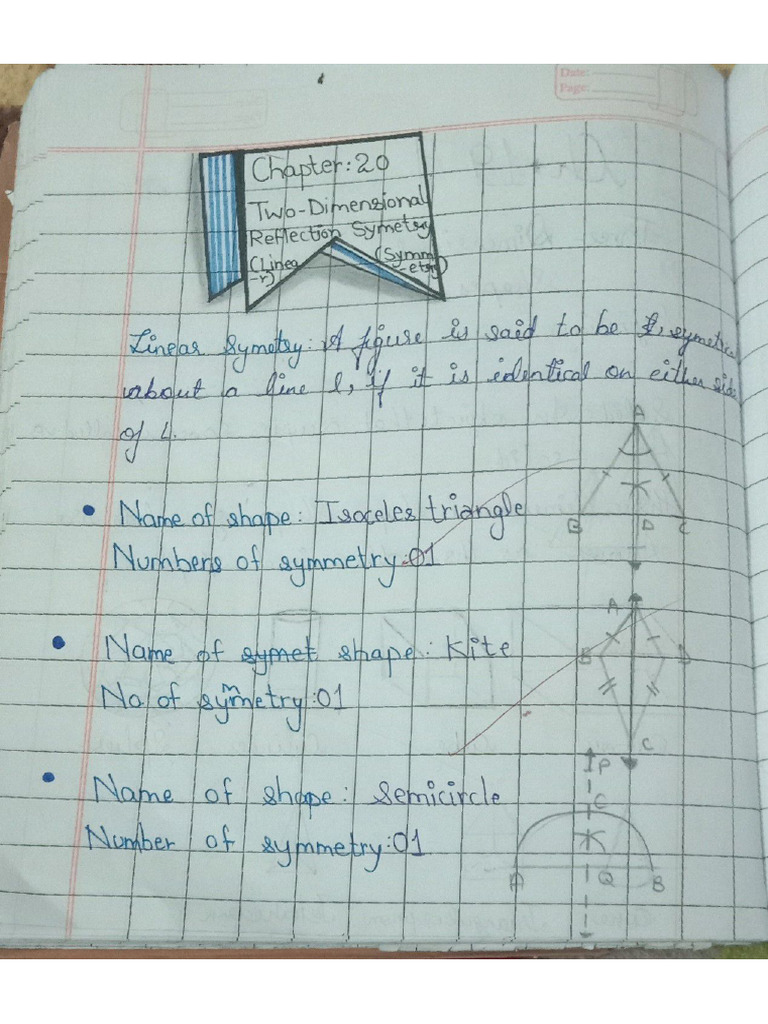 Date:
Page:
Chapter:20
Two-Dimensional
Reflection Symetry
(Linea
-r)
(Symm
-etry)
Linear Symetry: A figure is said to be symetric
about a line l, if it is identical on either side
of L.
A
B D C
• Name of shape: Isoceles triangle
Numbers of symmetry:01
A
B D
C
• Name of symet shape: Kite
No. of symmetry:01
P
C
A Q B
• Name of shape: Semicircle
Number of symmetry:01